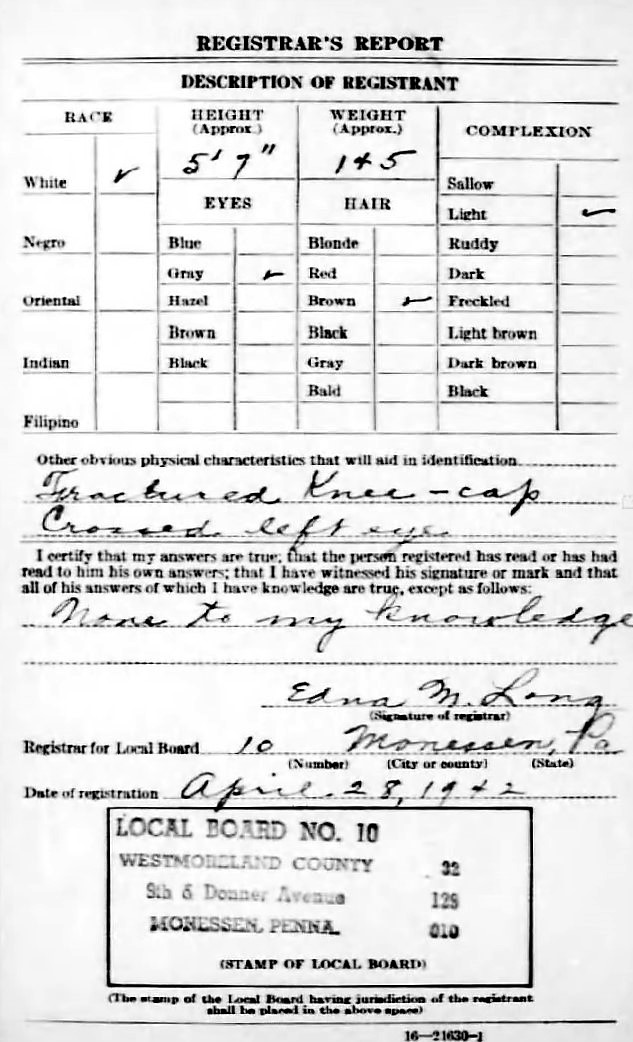 REGISTRAR'S REPORT
DESCRIPTION OF REGISTRANT
RACE
HEIGHT
(Approx.)
WEIGHT
(Approx.)
COMPLEXION
5' 7"
145
White ✓
Sallow
EYES
HAIR
Light ✓
Negro
Blue
Blonde
Ruddy
Gray ✓
Red
Dark
Oriental
Hazel
Brown ✓
Freckled
Brown
Black
Light brown
Indian
Black
Gray
Dark brown
Bald
Black
Filipino
Other obvious physical characteristics that will aid in identification
Fractured Knee-cap
Crossed left eye
I certify that my answers are true; that the person registered has read or has had
read to him his own answers; that I have witnessed his signature or mark and that
all of his answers of which I have knowledge are true, except as follows:
None to my knowledge
Edna M. Long
(Signature of registrar)
Registrar for Local Board 10 Monessen, Pa
(Number) (City or county) (State)
Date of registration April 28, 1942
LOCAL BOARD NO. 10
WESTMORELAND COUNTY 32
& Donner Avenue 129
MONESSEN, PENNA. 010
(STAMP OF LOCAL BOARD)
(The stamp of the Local Board having jurisdiction of the registrant
shall be placed in the above space)
16—21630-1